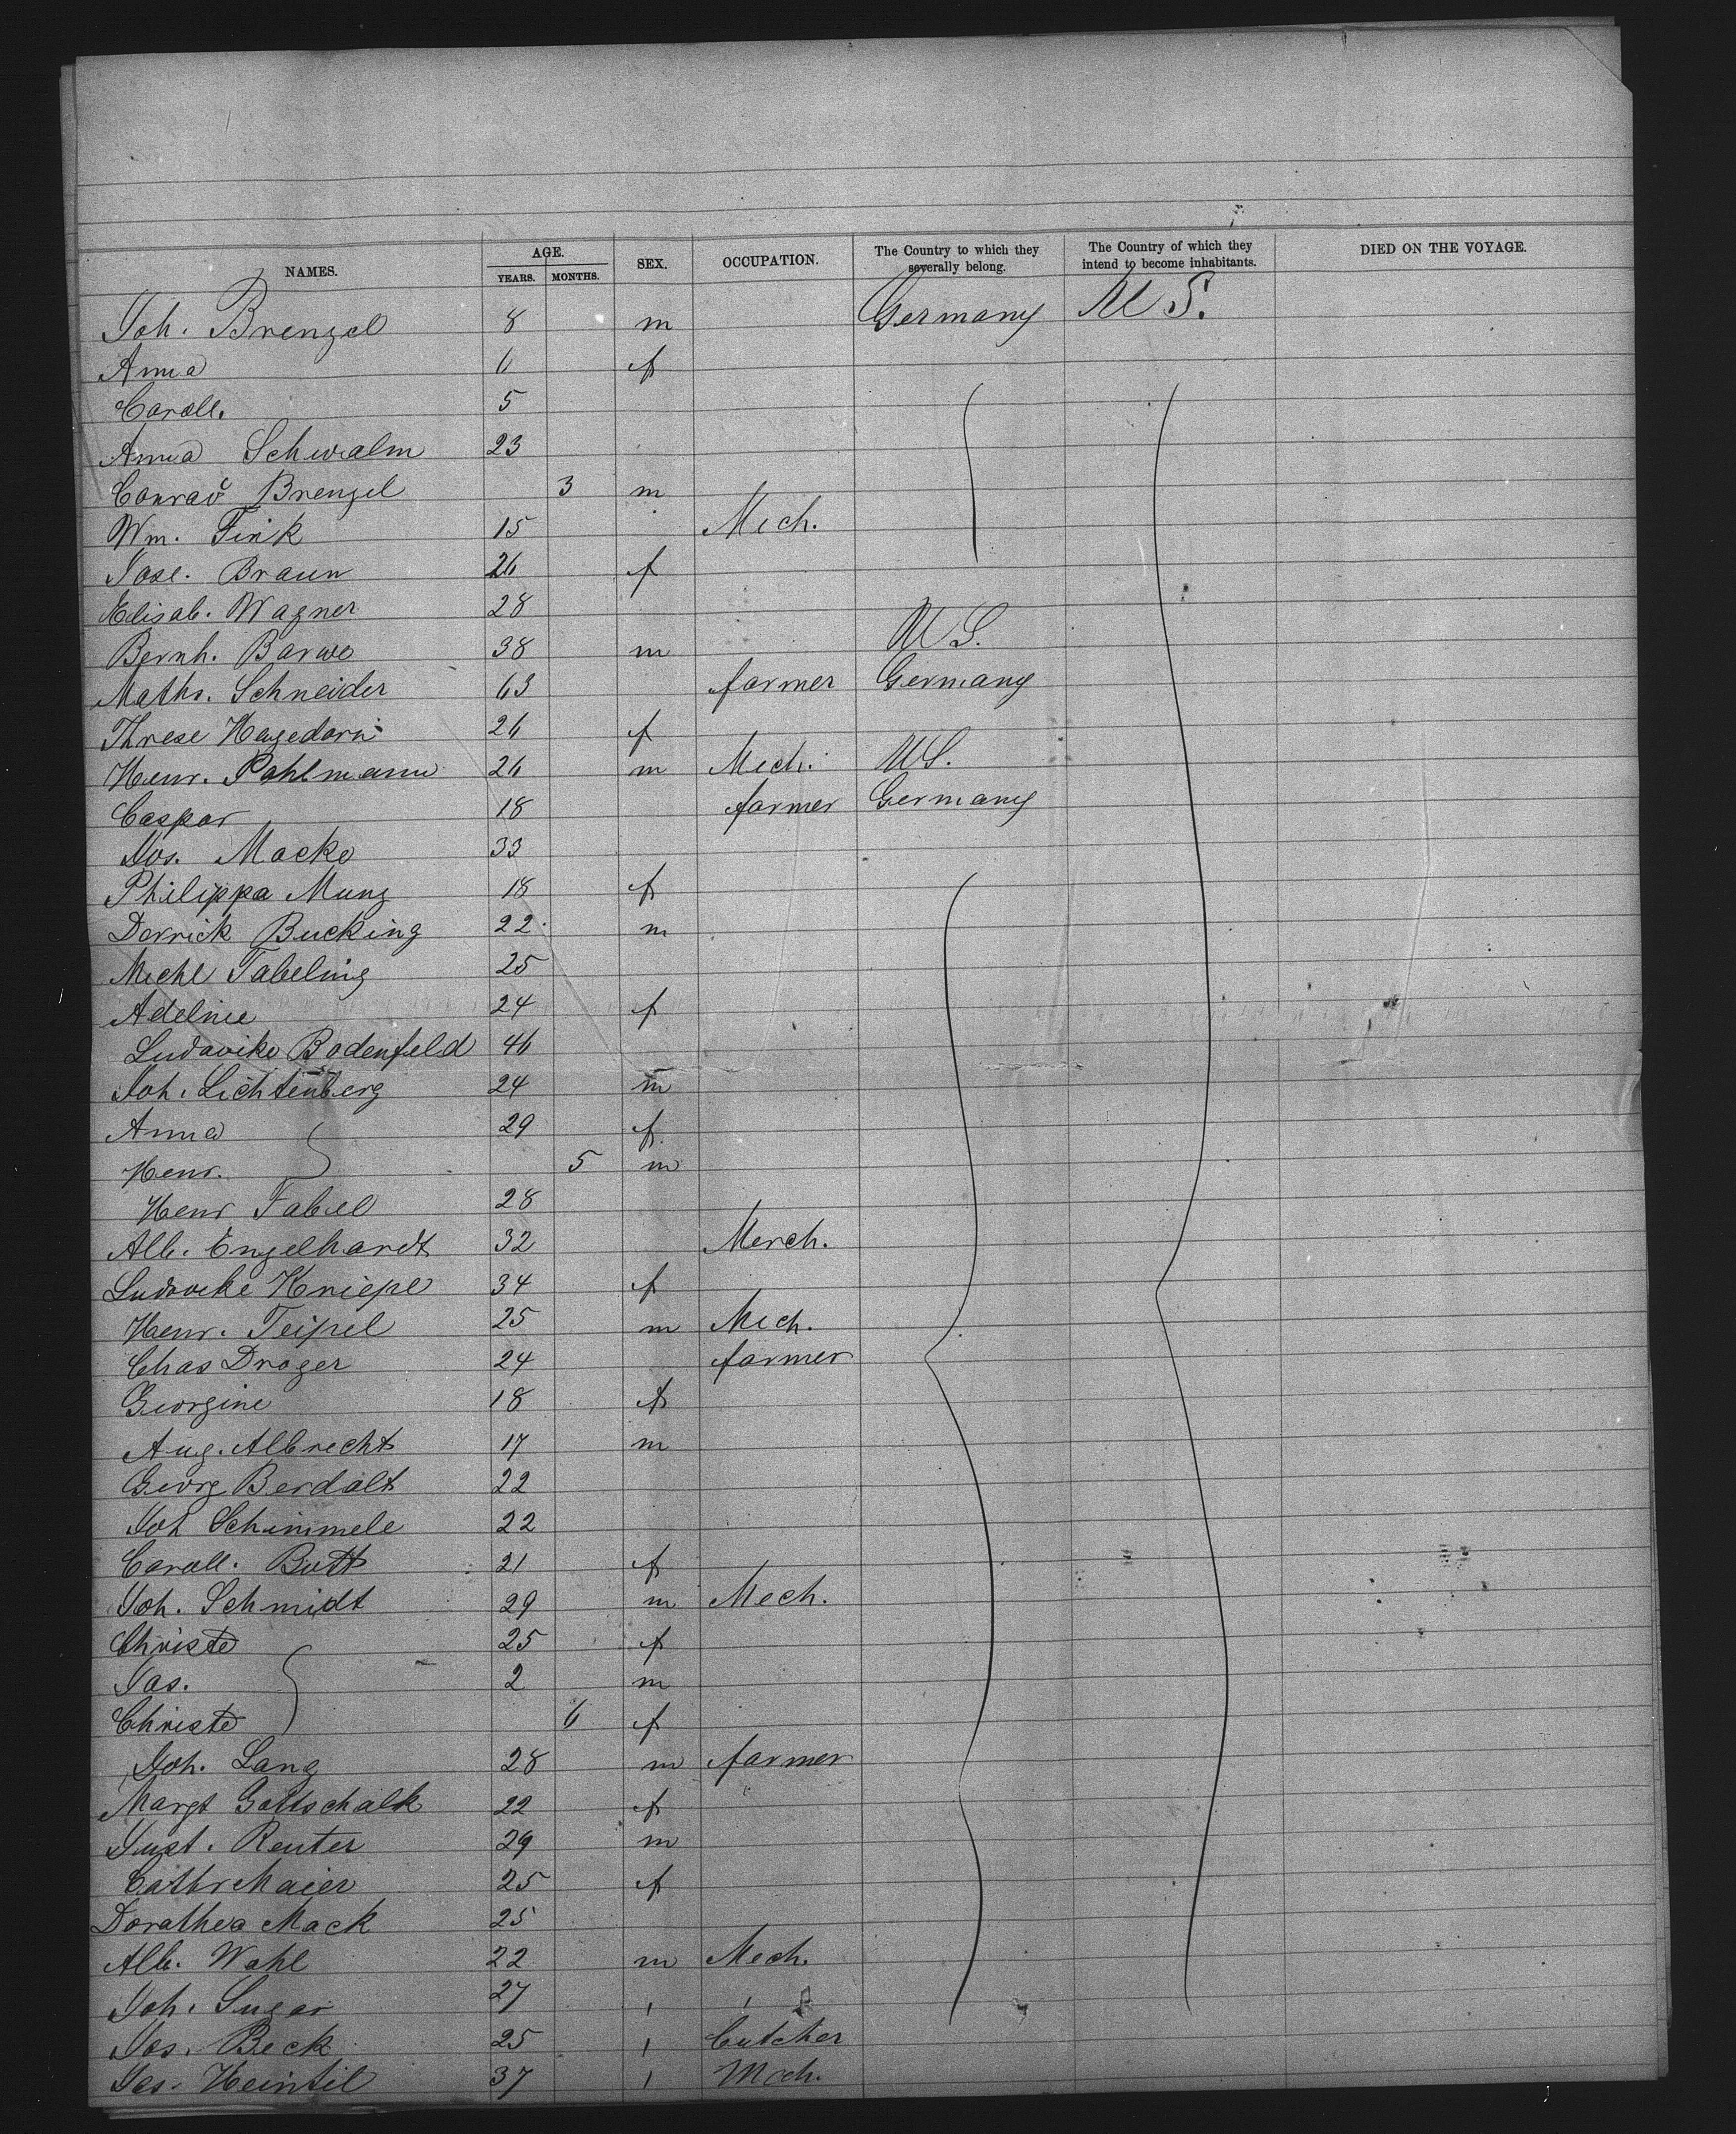 NAMES. AGE. YEARS. MONTHS. SEX. OCCUPATION. The Country to which they severally belong. The Country of which they intend to become inhabitants. DIED ON THE VOYAGE.
Joh. Brenzel 8 m Germany U S.
Anna 6 f
Caroll. 5
Anna Schwalm 23
Conrad Brenzel 3 m
Wm. Fink 15 Mech.
Jose. Braun 26 f
Elisab. Wagner 28
Bernh. Barwe 38 m U S.
Maths. Schneider 63 farmer Germany
Threse Hagedorn 26 f
Henr. Pohlmann 26 m Mech. U S.
Caspar 18 farmer Germany
Jos. Macke 33
Philippa Munz 18 f
Derrick Bucking 22 m
Michl Tabeling 25
Adeline 24 f
Ludovike Bodenfeld 46
Joh. Lichtenberg 24 m
Anna 29 f
Henr. 5 m
Henr Fabel 28
Alb. Engelhardt 32 Merch.
Ludovike Kniepe 34 f
Henr. Teipel 25 m Mech.
Chas Droger 24 farmer
Georgine 18 f
Aug. Albrecht 17 m
Georg Berdalt 22
Joh Schimmele 22
Caroll. Butt 21 f
Joh. Schmidt 29 m Mech.
Christe 25 f
Jas. 2 m
Christe 6 f
Joh. Lang 28 m farmer
Margt Gottschalk 22 f
Just. Reuter 29 m
Cathr Maier 25 f
Dorathea Mack 25
Alb. Wahl 22 m Mech.
Joh. 27
Jos. Beck 25 butcher
Jos. Heintil 37 Mech.